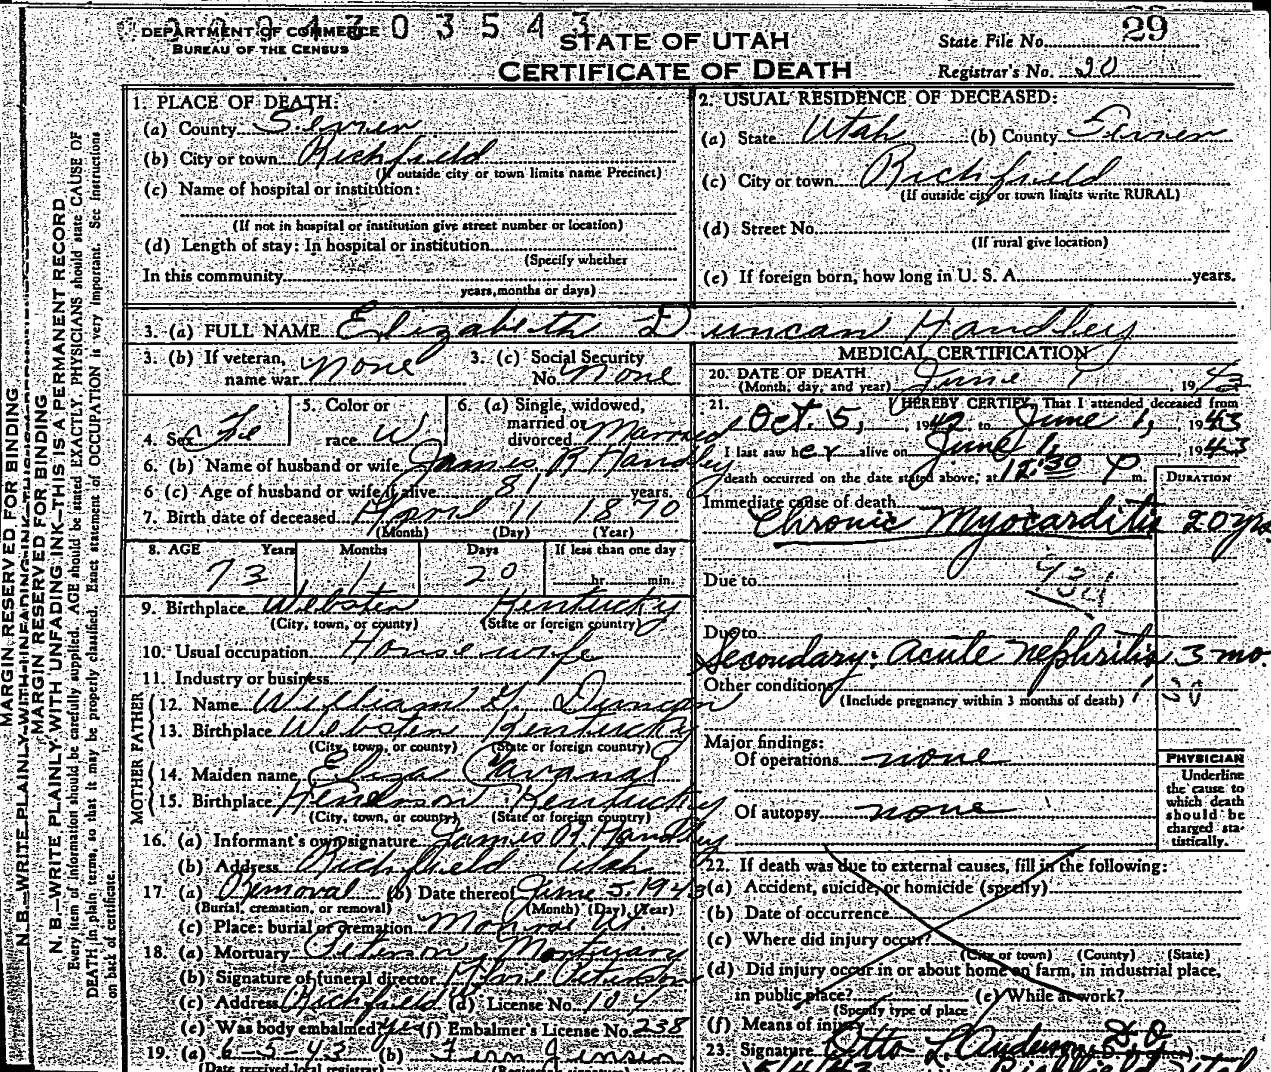 0 0 9 4 3 0 3 5 4 3
DEPARTMENT OF COMMERCE
BUREAU OF THE CENSUS
STATE OF UTAH
CERTIFICATE OF DEATH
State File No. 29
Registrar's No. 20
MARGIN RESERVED FOR BINDING
N. B.—WRITE PLAINLY WITH UNFADING INK—THIS IS A PERMANENT RECORD
MARGIN RESERVED FOR BINDING
N. B.—WRITE PLAINLY WITH UNFADING INK—THIS IS A PERMANENT RECORD
Every item of information should be carefully supplied. AGE should be stated EXACTLY. PHYSICIANS should state CAUSE OF
DEATH in plain terms, so that it may be properly classified. Exact statement of OCCUPATION is very important. See instructions
on back of certificate.
1. PLACE OF DEATH:
(a) County Sevier
(b) City or town Richfield
(If outside city or town limits name Precinct)
(c) Name of hospital or institution:
(If not in hospital or institution give street number or location)
(d) Length of stay: In hospital or institution
(Specify whether
In this community
years, months or days)
2. USUAL RESIDENCE OF DECEASED:
(a) State Utah (b) County Sevier
(c) City or town Richfield
(If outside city or town limits write RURAL)
(d) Street No.
(If rural give location)
(e) If foreign born, how long in U. S. A. years.
3. (a) FULL NAME Elizabeth Duncan Handley
3. (b) If veteran, name war None
3. (c) Social Security No. None
4. Sex Fe
5. Color or race W
6. (a) Single, widowed, married or divorced Married
6. (b) Name of husband or wife James R Handley
6 (c) Age of husband or wife if alive 81 years.
7. Birth date of deceased April 11 1870
(Month) (Day) (Year)
8. AGE Years Months Days If less than one day
73 1 20 hr. min.
9. Birthplace Webster Kentucky
(City, town, or county) (State or foreign country)
10. Usual occupation Housewife
11. Industry or business
FATHER
12. Name William G. Duncan
13. Birthplace Webster Kentucky
(City, town, or county) (State or foreign country)
MOTHER
14. Maiden name Eliza Cavanah
15. Birthplace Henderson Kentucky
(City, town, or county) (State or foreign country)
16. (a) Informant's own signature James R. Handley
(b) Address Richfield Utah
17 (a) Removal (b) Date thereof June 5, 1943
(Burial, cremation, or removal) (Month) (Day) (Year)
(c) Place: burial or cremation Monroe Ut.
18. (a) Mortuary Peterson Mortuary
(b) Signature of funeral director
(c) Address Richfield (d) License No. 104
(e) Was body embalmed? Yes (f) Embalmer's License No. 238
19. (a) 6-5-43 (b) Fern Jensen
(Date received local registrar) (Registrar's signature)
MEDICAL CERTIFICATION
20. DATE OF DEATH
(Month, day, and year) June 1, 1943
21. I HEREBY CERTIFY, That I attended deceased from
Oct. 5, 1942, to June 1, 1943
I last saw her alive on June 1, 1943
death occurred on the date stated above, at 12:30 P m.
DURATION
Immediate cause of death
Chronic Myocarditis 20 yrs.
Due to
Due to
Secondary: Acute nephritis 3 mo.
Other conditions
(Include pregnancy within 3 months of death)
Major findings:
Of operations none
Of autopsy none
PHYSICIAN
Underline
the cause to
which death
should be
charged sta-
tistically.
22. If death was due to external causes, fill in the following:
(a) Accident, suicide, or homicide (specify)
(b) Date of occurrence
(c) Where did injury occur?
(City or town) (County) (State)
(d) Did injury occur in or about home on farm, in industrial place,
in public place? (e) While at work?
(Specify type of place
(f) Means of injury
23. Signature Otto L. Anderson D.O.